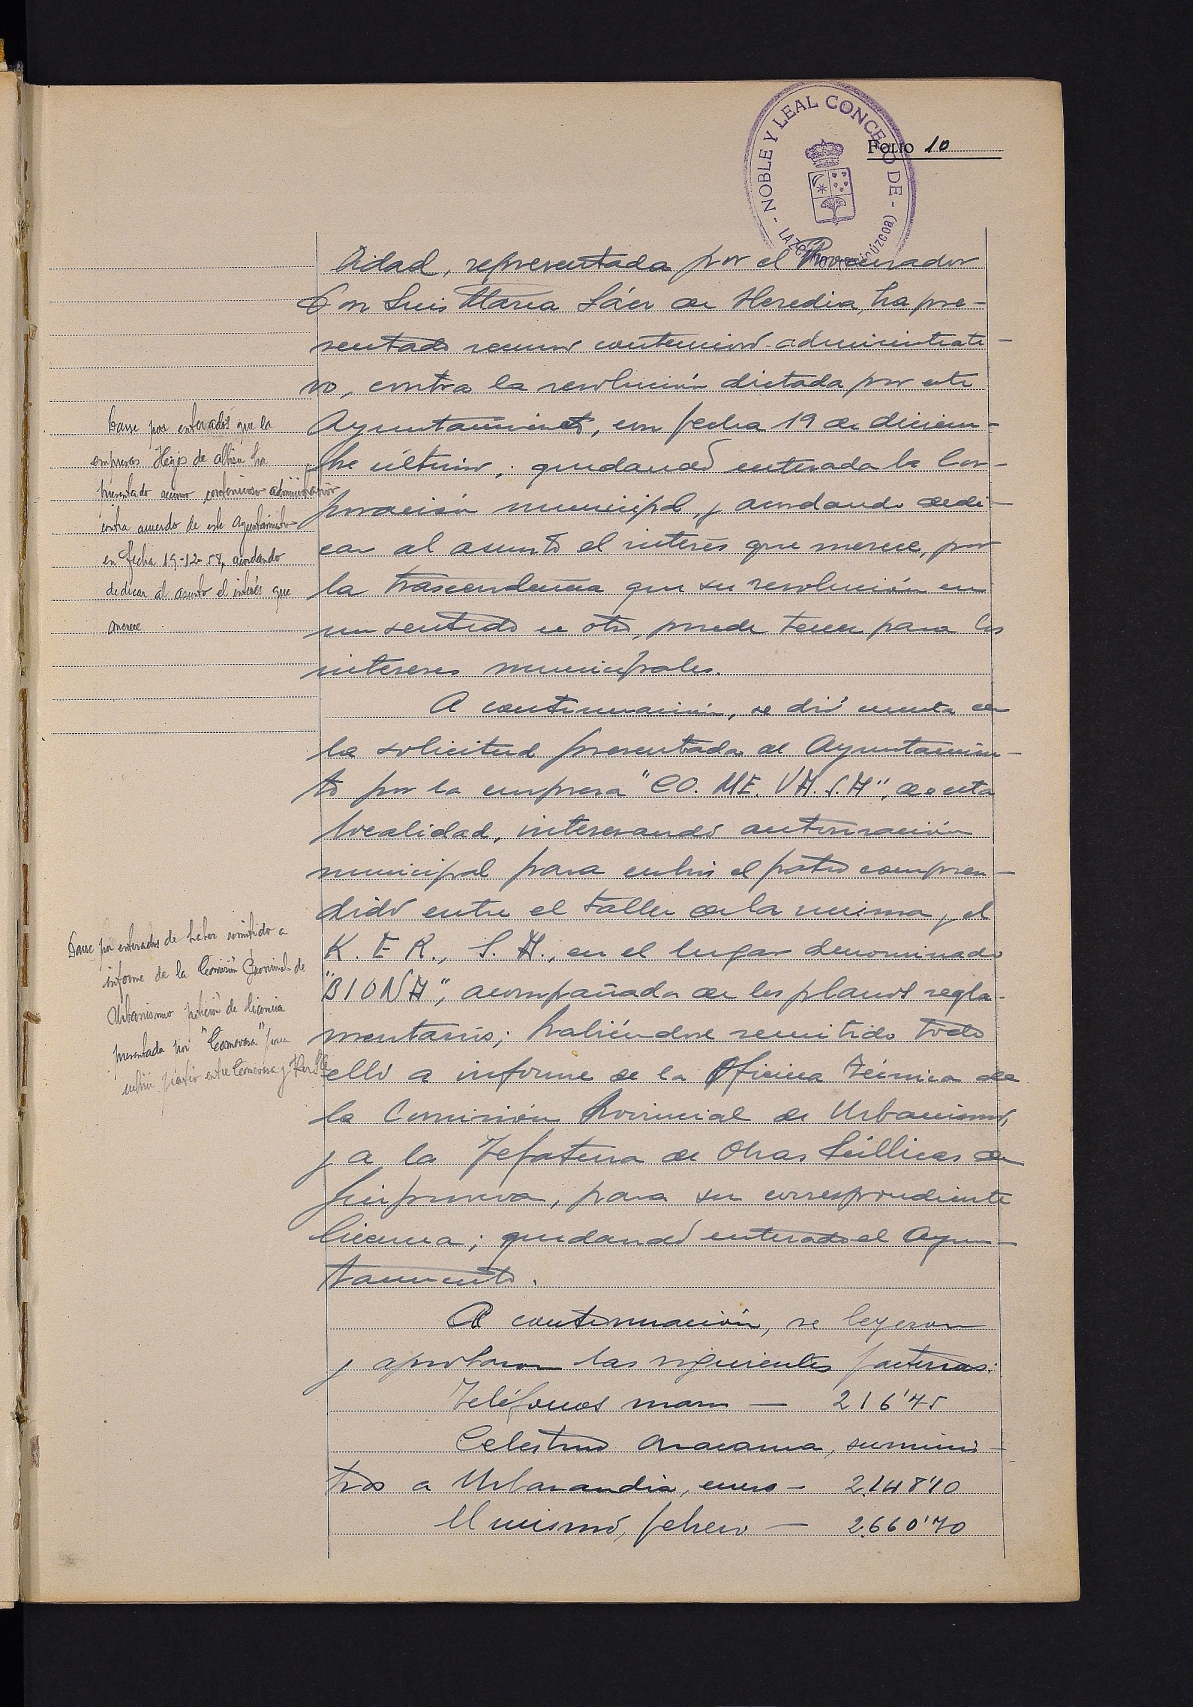 - NOBLE Y LEAL CONCEJO DE -
FOLIO 10
lidad, representada por el Procurador
Don Luis María Sáez de Heredia, ha pre-
sentado recurso contencioso-administrati-
vo, contra la resolución dictada por este
Ayuntamiento, con fecha 19 de diciem-
bre último, ; quedando enterada la Cor-
poración municipal, y acordando dedi-
car al asunto el interés que merece, por
la trascendencia que su resolución en
un sentido u otro, puede tener para los
intereses municipales.
Darse por enterados que la
empresa Hijos de
presentado recurso contencioso administrativo
contra acuerdo de este Ayuntamiento
en fecha 19-12-58, acordando
dedicar al asunto el interés que
merece
A continuación, se dió cuenta de
la solicitud presentada al Ayuntamien-
to por la empresa "CO. ME. VA. S.A", de esta
localidad, interesando autorización
municipal para cubrir el patio compren-
dido entre el taller de la misma y el
K. E. R., S. A., en el lugar denominado
"BIONA", acompañada de los planos regla-
mentarios; habiéndose remitido todo
ello a informe de la Oficina Técnica de
la Comisión Provincial de Urbanismo,
y a la Jefatura de Obras Públicas de
Guipuzcoa, para su correspondiente
licencia; quedando enterado el Ayun-
tamiento.
Darse por enterados de haber remitido a
informe de la Comisión Provincial de
Urbanismo petición de licencia
presentada por "Comevasa" para
cubrir patio entre Comevasa y Ker SA
A continuación, se leyeron
y aprobaron las siguientes facturas:
Teléfonos marzo — 216'75
Celestino Aracama, suminis-
tros a Urbarandia, enero - 2.148'10
El mismo, febrero — 2.660'70